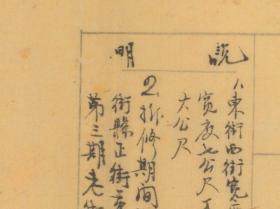 說明
1、東街西街寬
寬度七公尺
六公尺
2、拆修期間
街縣正街
第三期老街